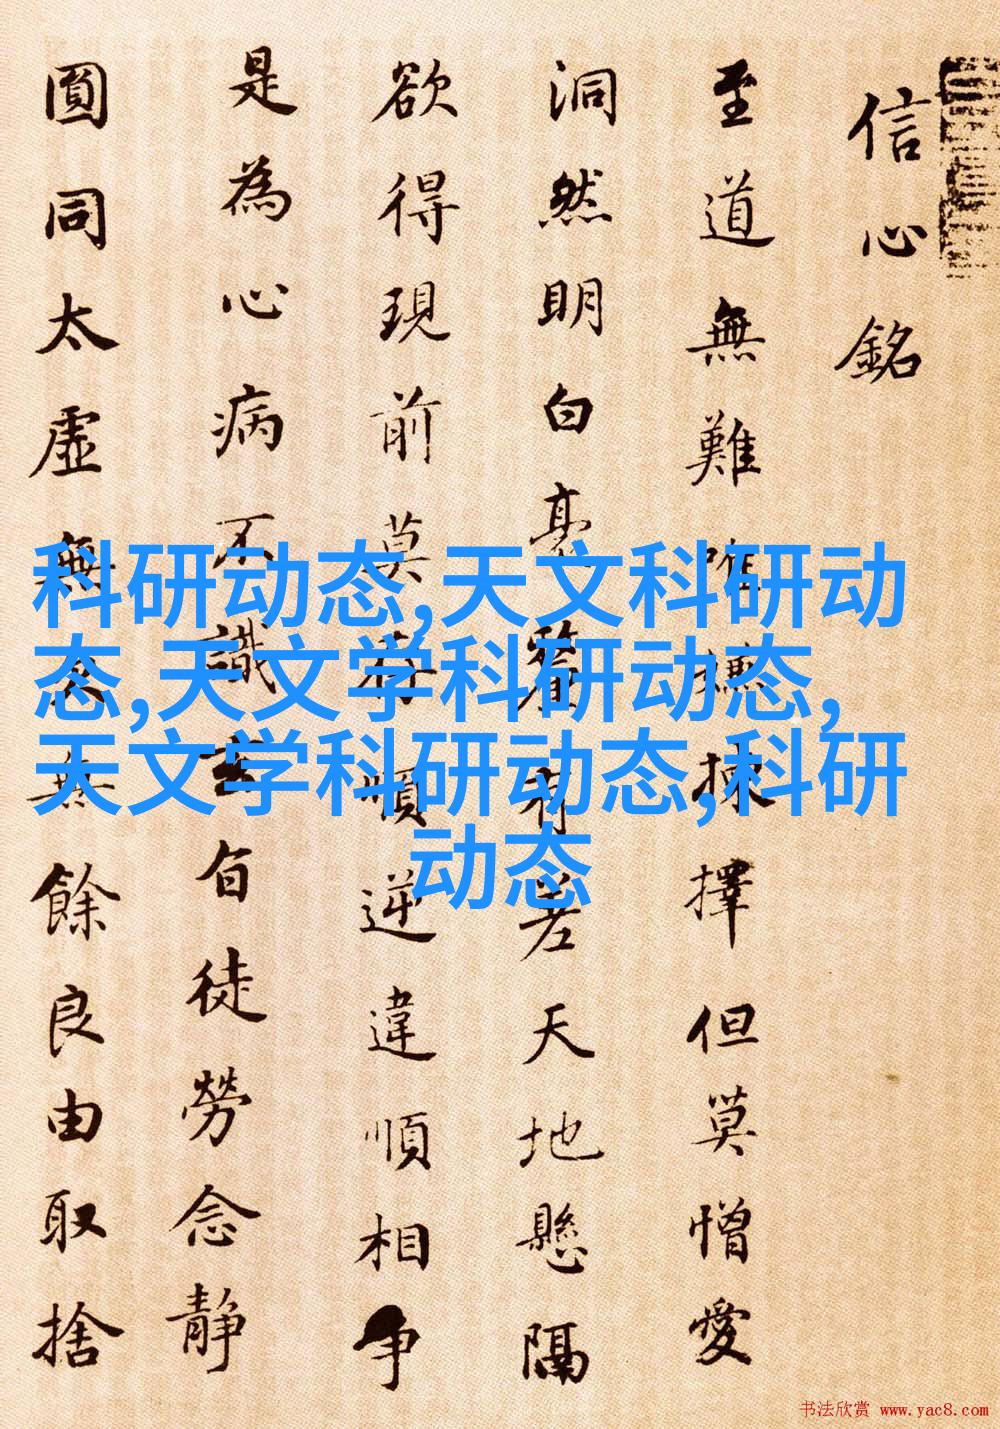 信心銘
至道無難唯嫌揀擇但莫憎愛
洞然明白毫釐有差天地懸隔
欲得現前莫存順逆違順相争
是為心病不識玄旨徒勞念静
圓同太虛無欠無餘良由取捨
科研动态,天文科研动
态,天文学科研动态,
天文学科研动态,科研
动态
书法欣赏 www.yac8.com